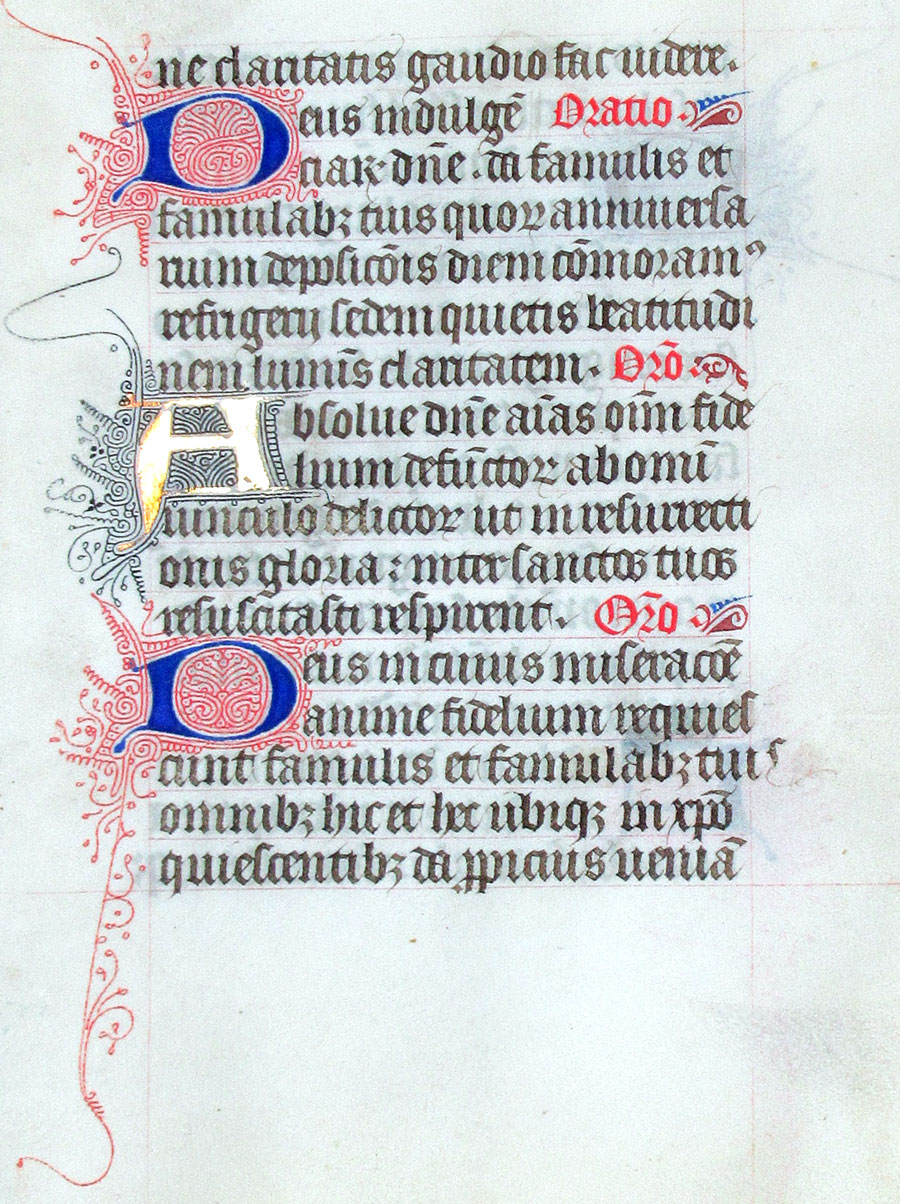 ne claritatis gaudio fac uidere.
Deus indulgē Oratio
ciaꝝ dn̄e . da famulis et
famulabꝫ tuis quoꝝ anniuersa
rium deposicōis diem cōmoramꝰ
refrigerij sedem quietis beatitudi
nem lumīs claritatem. Orō
Absolue dn̄e aīas oīm fide
lium defūctoꝝ ab omī
uinculo delictoꝝ ut in resurrecti
onis gloria : inter sanctos tuos
resuscitasti respirent. Orō
Deus in cuius miseracōe
anime fidelium requies
cunt famulis et famulabꝫ tuis
omnibꝫ hic et hec ubiqꝫ in xp̄o
quiescentibꝫ da ꝓpicius ueniā